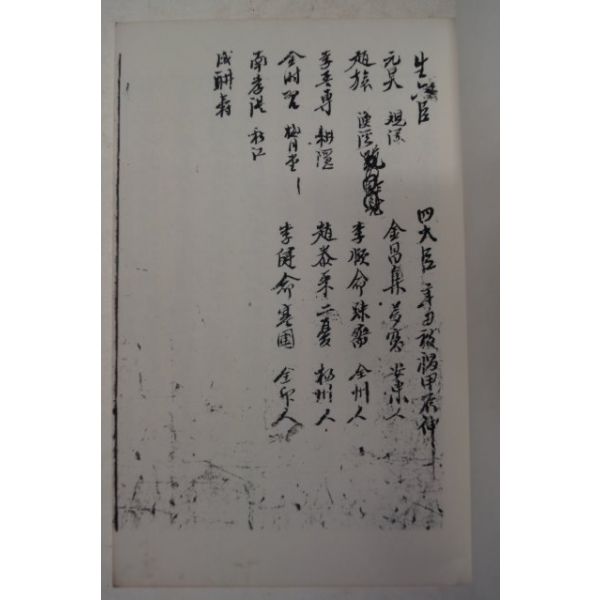 生六臣
元昊 観瀾
趙旅 漁溪
李孟專 耕隱
金时習 梅月堂
南孝温 秋江
成聃壽
四大臣 辛丑被禍甲辰伸
金昌集 夢窩 安東人
李頤命 疎齋 全州人
趙泰采 二憂 楊州人
李健命 寒圃 全州人